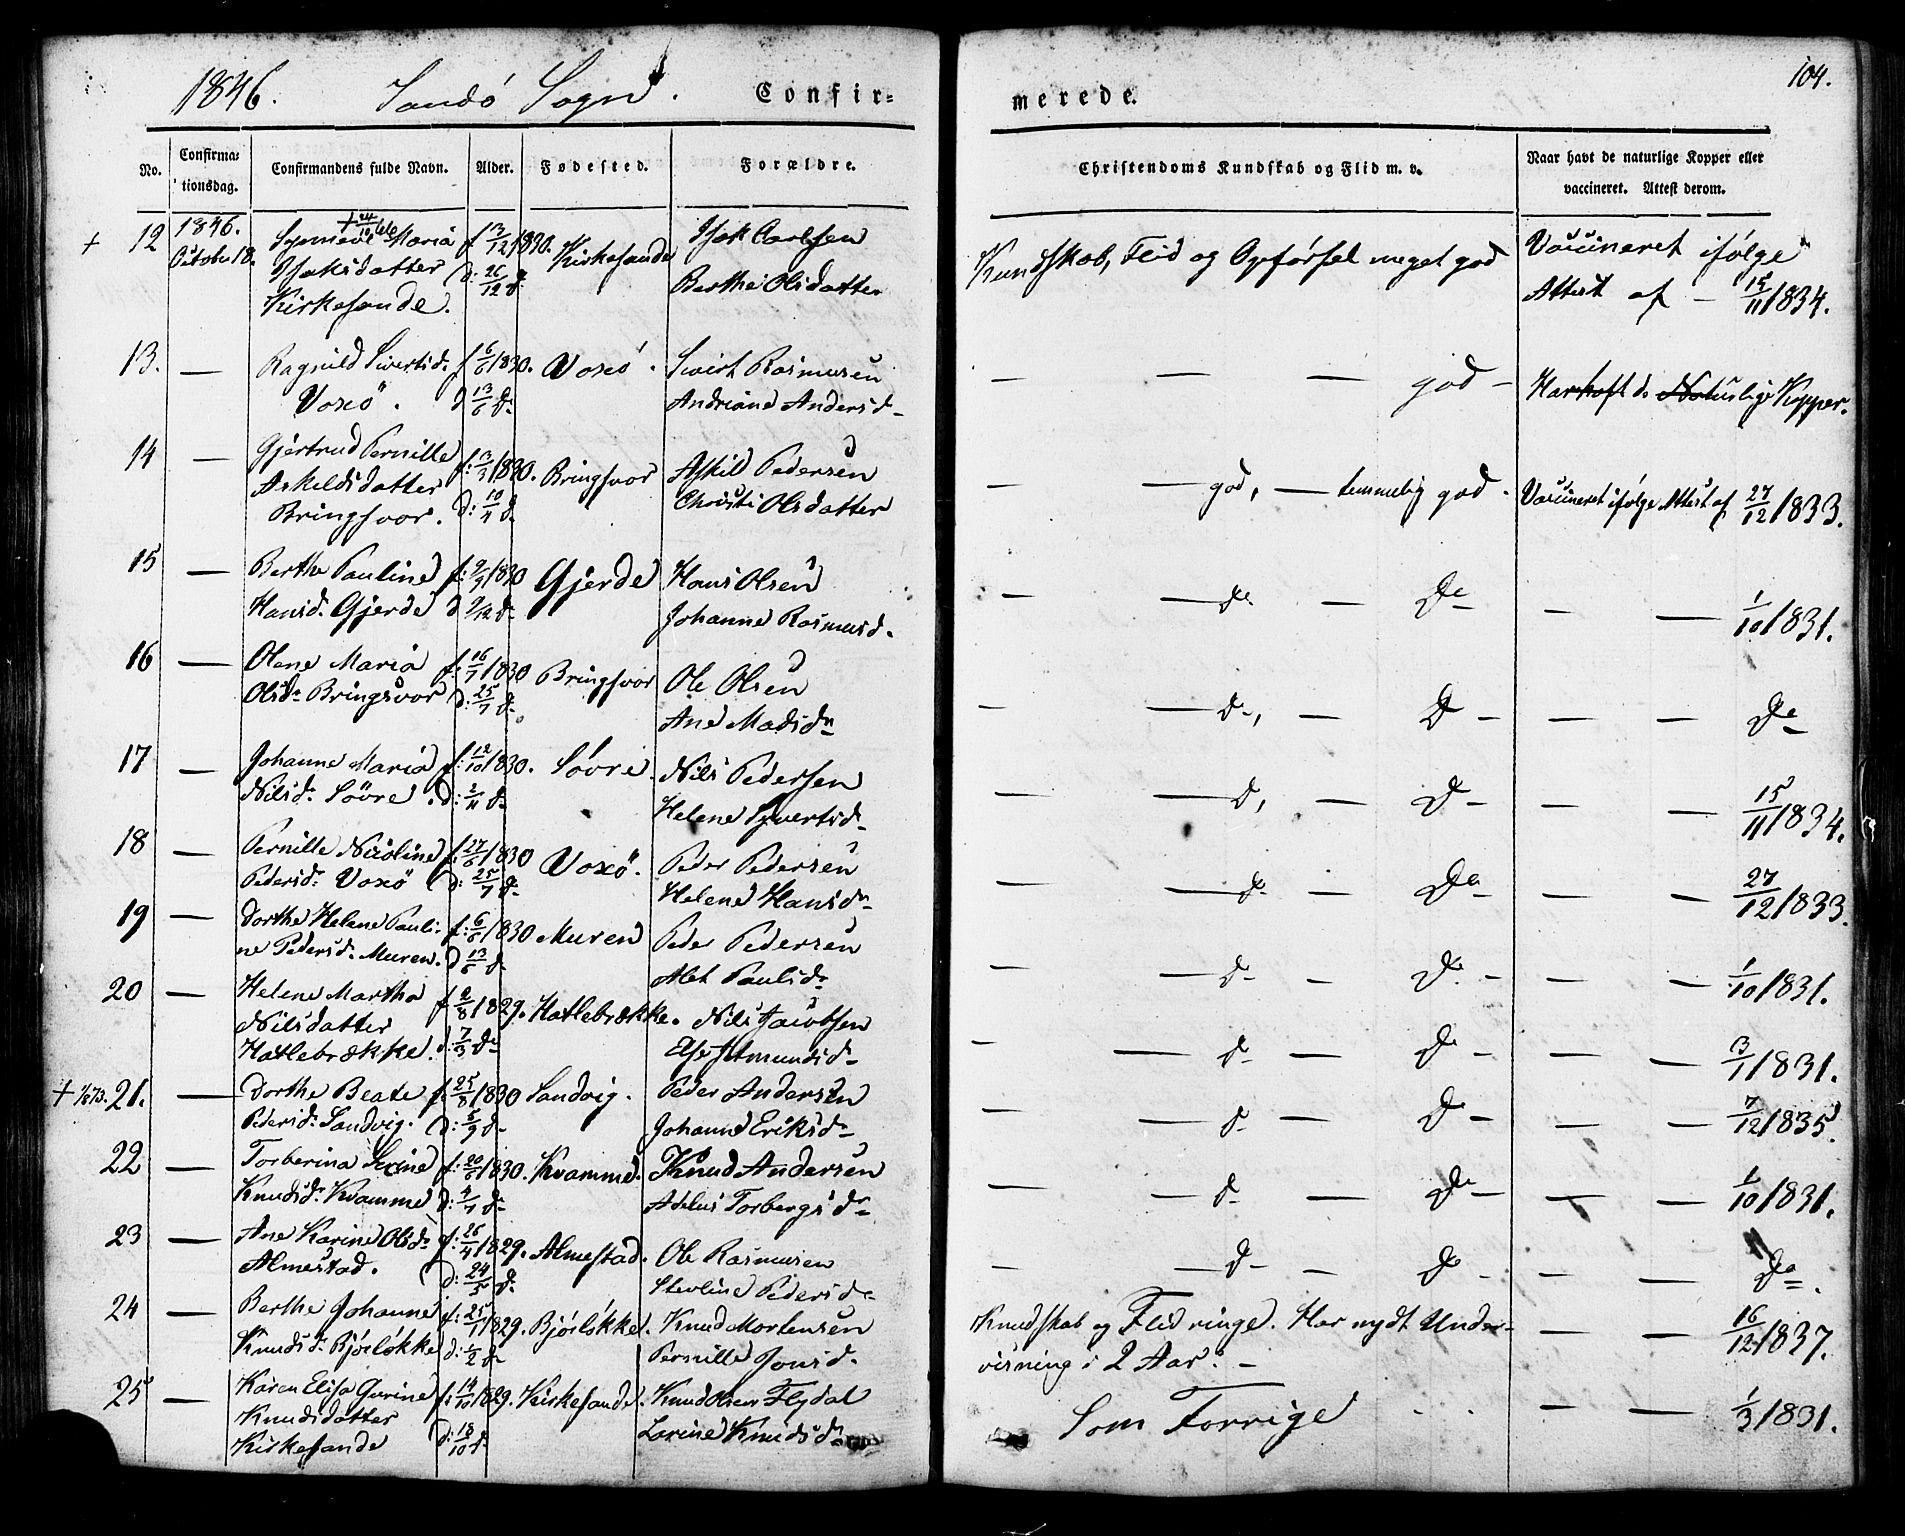 1846. Sandö Sogn. Confir=
merede. 104.
No. Confirma= tionsdag. Confirmandens fulde Navn. Alder. Fødested. Forældre.
Christendoms Kundskab og Flid m. v. Naar havt de naturlige Kopper eller vaccineret. Attest derom.
+ 12 1846. Octobr 18. Maria f 13/12 1830. Kirkesande Isak Carlsen
Isaksdatter d: 26/12 d. Berthe Olsdatter
Kirkesande.
Kundskab, Flid og Opførsel meget god Vaccineret ifølge
Attest af — 15/11 1834.
13. — Ragnild Sivertsd. f 6/6 1830. Voxö. Sivert Rasmusen
Voxö. d 13/6 d. Andriane Andersd.
— — — god — Har haft d. Naturlige Kopper.
14 — Gjertrud Pernille f: 13/3 1830. Bringsvor Askild Pedersen
Askeldsdatter d: 10/4 d. Christi Olsdatter
Bringsvor.
— — god, — temmelig god. Vaccineret ifølge Attest af 27/12 1833.
15 — Berthe Pauline f: 9/9 1830 Gjerde Hans Olsen
Hansd. Gjerde d 9/12 d. Johanne Rasmusd.
— — do — Do — — 1/10 1831.
16 — Olene Maria f: 16/7 1830 Bringsvor Ole Olsen
Olsdr Bringsvor d: 25/7 d. Ane Madsdr
— — d, — D — — — Do
17 — Johanne Maria f: 12/10 1830. Søvre Nils Pedersen
Nilsd. Søvre. d: 2/11 d. Helene Syvertsd.
— — d, — D — — — 15/11 1834.
18 — Pernille Nicoline f: 27/6 1830 Voxö. Peder Pedersen
Pedersd. Voxö d: 25/7 d. Helene Hansdr
— — d — Do — — 27/12 1833.
19 — Dorthe Helene Pauli= f: 6/6 1830 Muren Peder Pedersen
ne Pedersd. Muren. d 13/6 d. Alet Paulsdr
— — d — D. — — — 1/10 1831.
20 — Helene Martha f 2/8 1829. Hatlebrække. Nils Jacobsen
Nilsdatter d: 7/3 do Else Amundsd.
Hatlebrække.
— — d — D — — — 3/1 1831.
+ 21. — Dorthe Beate f. 25/8 1830 Sandvig. Peder Andersen
Pedersd. Sandvig. d: 5/9 d. Johanne Eriksd.
— — d — D — — — 7/12 1835.
22 — Torberina Serine f: 20/6 1830. Kvamme. Knud Andersen
Knudsd. Kvamme d: 4/7 d. Torbergsdr
— — d — D — — — 1/10 1831.
23 — Ane Karine Olsdr f: 26/4 1829. Almestad. Ole Rasmusen
Almestad. d: 24/5 d. Pedersd.
— — d — D — — — Do.
24 — Berthe Johanne f: 25/1 1829. Bjørløkke. Knud Mortensen
Knudsd. Bjørløkke d: 1/2 d. Pernille Jonsd.
Kundskab og Flid ringe. Har nydt Under-
visning i 2 Aar. — — — 16/12 1837.
25 — Karen Elisa Gurine f: 14/10 1829. Kirkesande. Knud Olsen Flydal
Knudsdatter d: 18/10 d. Lorine Knudsdr
Kirkesande
Som Forrige — — 1/3 1831.